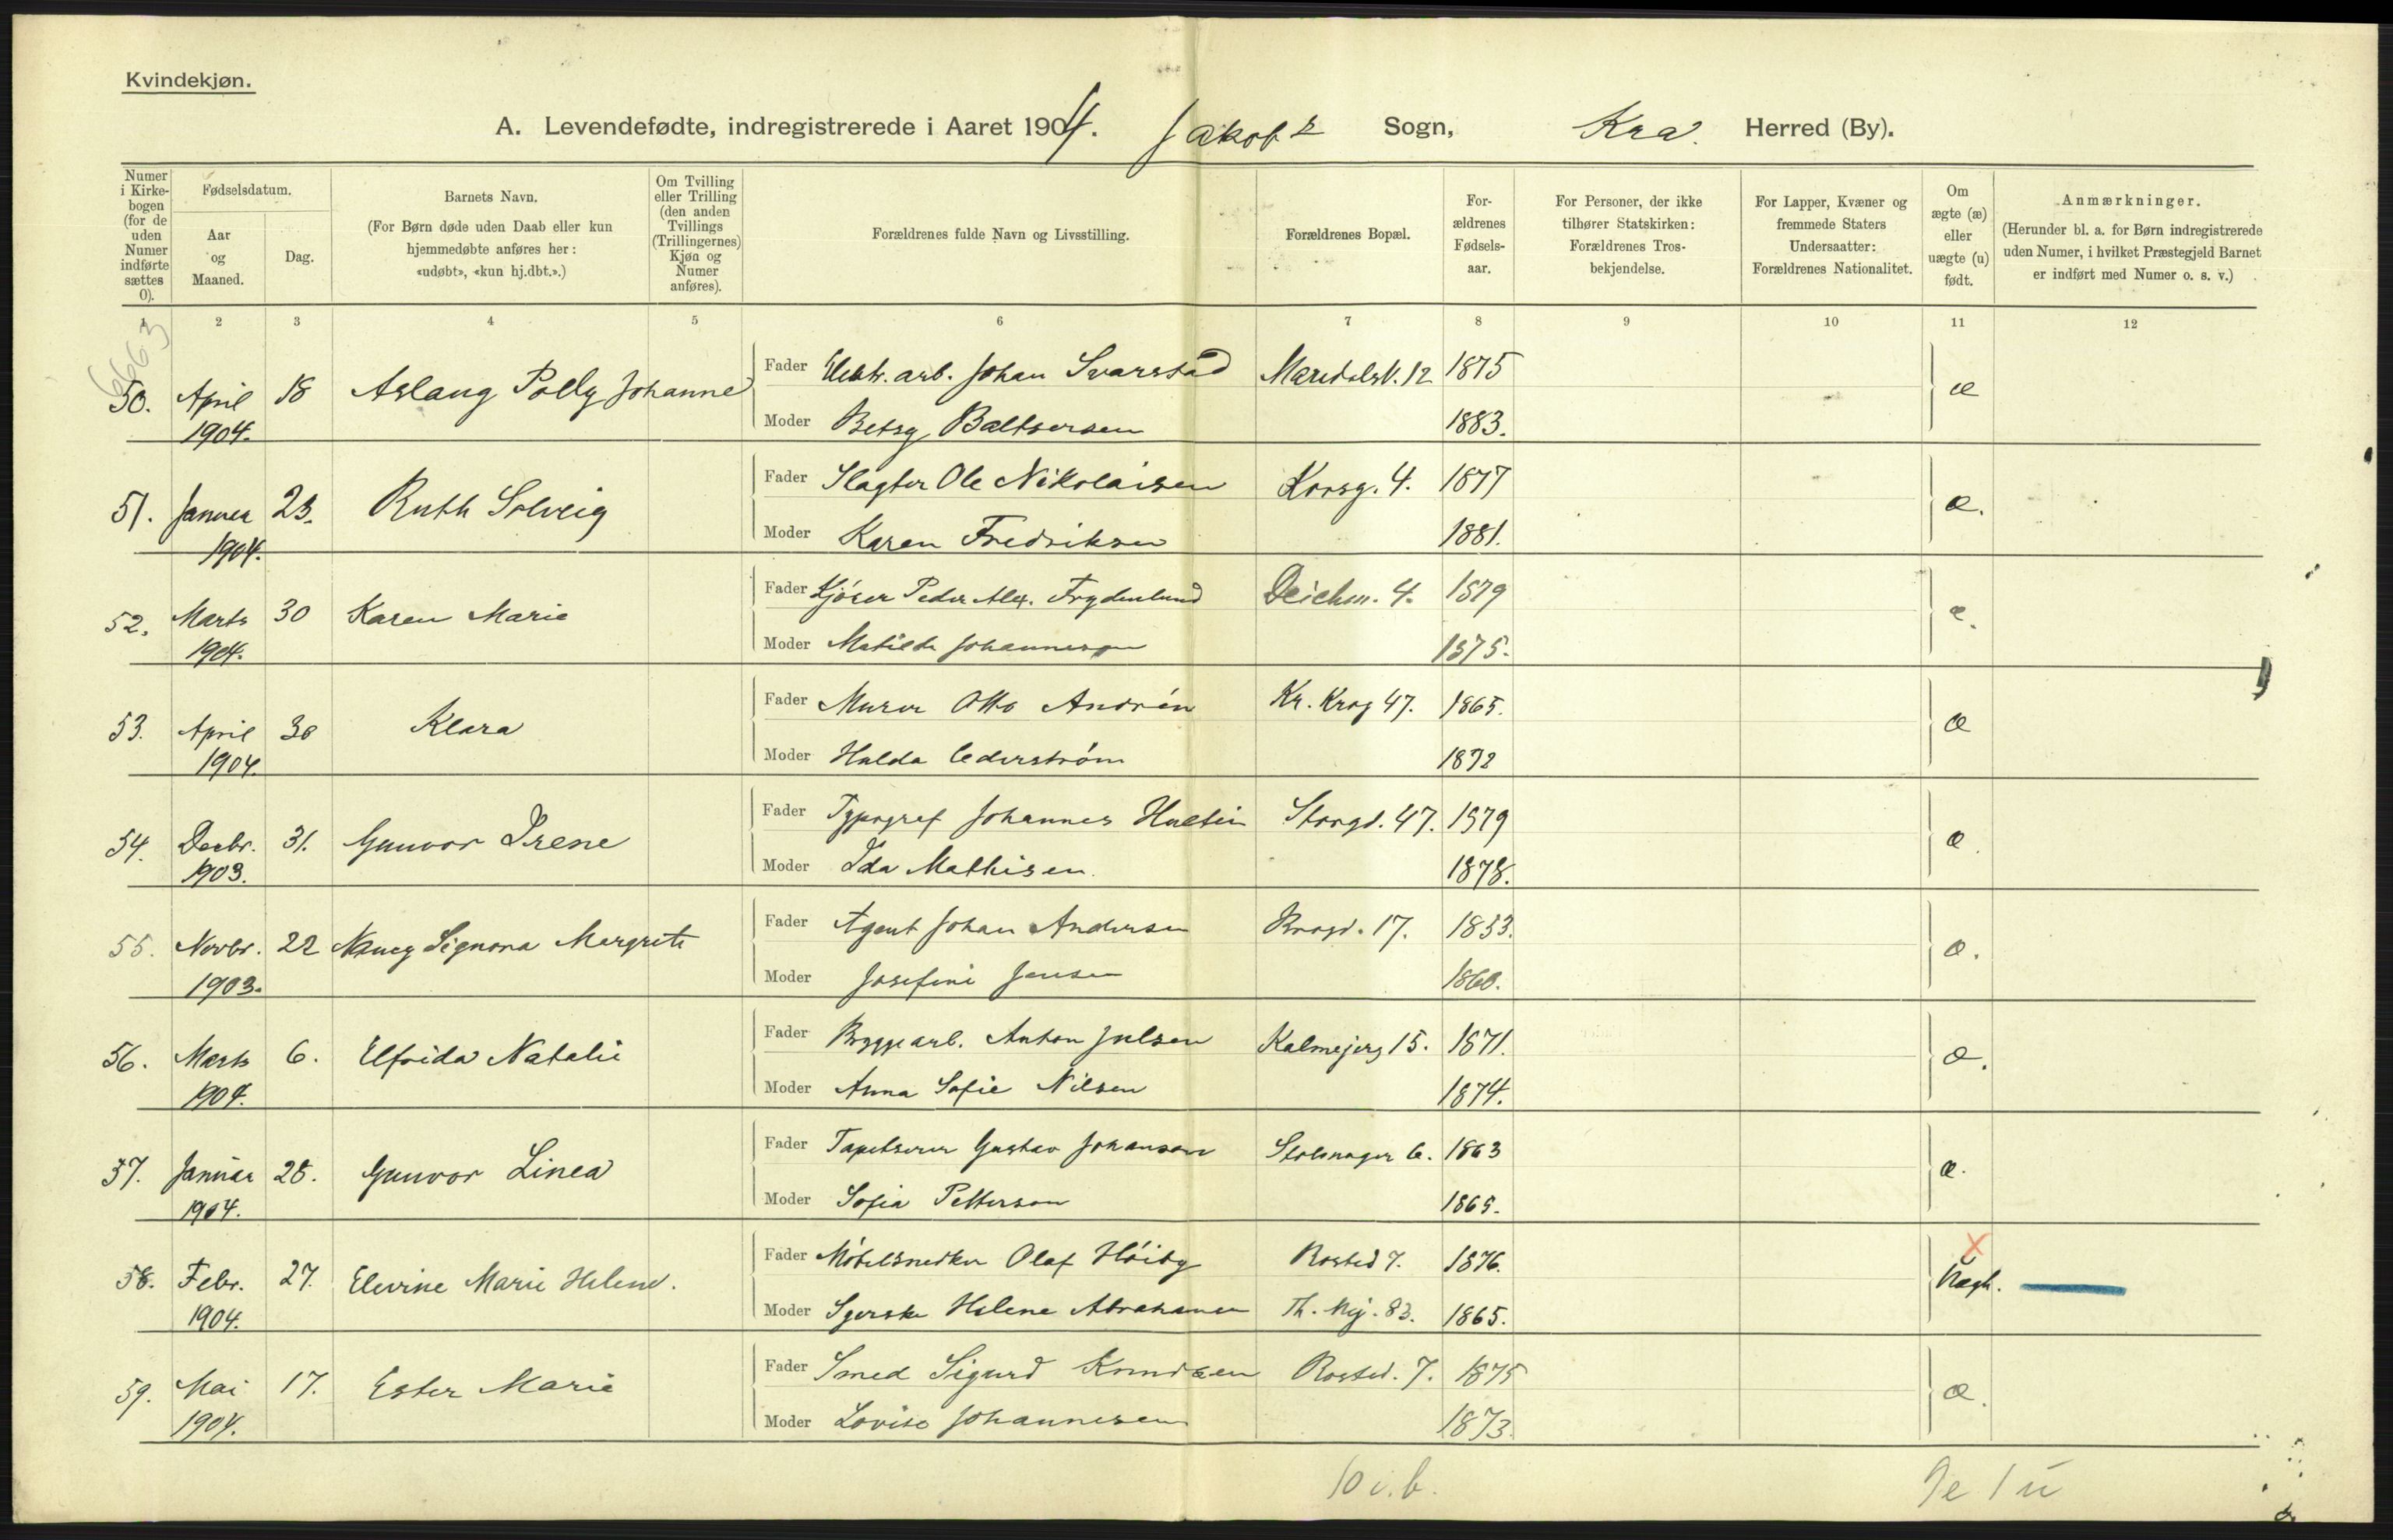 Kvindekjøn.
A. Levendefødte, indregistrerede i Aaret 1904. Jakobs Sogn, Kra. Herred (By).
Numer i Kirkebogen (for de uden Numer indførte sættes 0).
Fødselsdatum.
Aar og Maaned.
Dag.
Barnets Navn.
(For Børn døde uden Daab eller kun hjemmedøbte anføres her: «udøbt», «kun hj.dbt.».)
Om Tvilling eller Trilling (den anden Tvillings (Trillingernes) Kjøn og Numer anføres).
Forældrenes fulde Navn og Livsstilling.
Forældrenes Bopæl.
Forældrenes Fødselsaar.
For Personer, der ikke tilhører Statskirken: Forældrenes Trosbekjendelse.
For Lapper, Kvæner og fremmede Staters Undersaatter: Forældrenes Nationalitet.
Om ægte (æ) eller uægte (u) født.
Anmærkninger.
(Herunder bl. a. for Børn indregistrerede uden Numer, i hvilket Præstegjeld Barnet er indført med Numer o. s. v.)
1 2 3 4 5 6 7 8 9 10 11 12
6663
50. April 1904. 18 Aslaug Polly Johanne Fader Elektr. arb. Johan Svarstad Maridalsv. 12 1875 æ
Moder Betsy Baltsersen 1883.
51. Januar 1904. 23. Ruth Solveig Fader Slagter Ole Nikolaisen Korsg. 4. 1877 æ.
Moder Karen Fredriksen 1881.
52. Marts 1904. 30 Karen Marie Fader Kjører Peder Alex. Frydenlund Deichm. 4. 1879 æ.
Moder Matilde Johannesen 1875.
53. April 1904. 30 Klara Fader Murer Otto Andrén Kr. Krog 47. 1865. æ
Moder Hulda Cederstrøm 1872
54. Decbr. 1903. 31. Gunvor Irene Fader Typograf Johannes Hultin Storgd. 47. 1879 æ.
Moder Ida Mathisen. 1878.
55. Novbr. 1903. 22 Nancy Signora Margrete Fader Agent Johan Andersen Brogd. 17. 1853. æ.
Moder Josefine Jensen 1860.
56. Marts 1904. 6. Elfrida Natalie Fader Bryggearb. Anton Julsen Kalmejerg 15. 1871. æ.
Moder Anna Sofie Nilsen 1874.
57. Januar 1904. 28. Gunvor Linea Fader Tapetserer Gustav Johanson Stolmager 6. 1863 æ.
Moder Sofia Petterson 1865.
58. Febr. 1904. 27. Elevine Marie Helene. Fader Møbelsnedker Olaf Høiby Rosted 7. 1876. X Uægt.
Moder Syerske Helene Abrahamsen Th. Mej. 83. 1865.
59. Mai 1904. 17. Ester Marie Fader Smed Sigurd Knudsen Rosted. 7. 1875 æ.
Moder Lovise Johannesen 1873.
10 i. b. 9e 1u